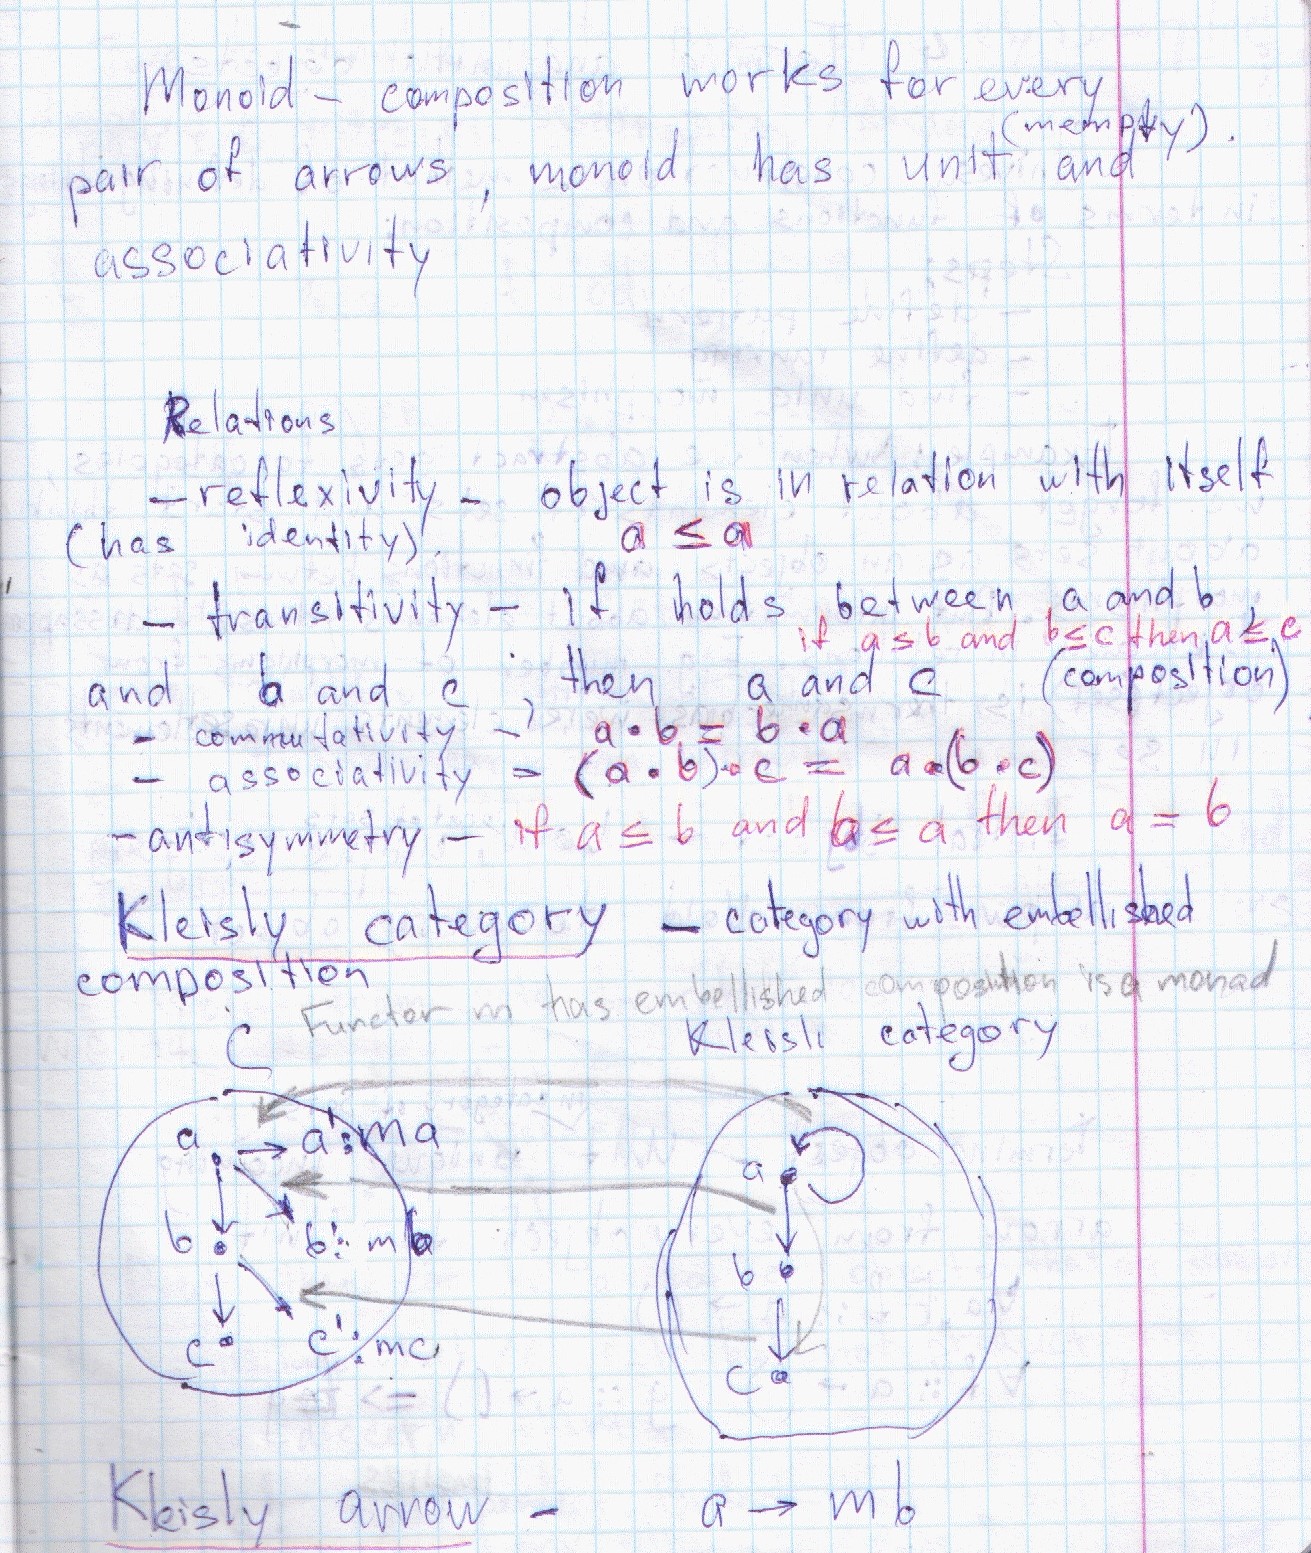 Monoid – composition works for every
(mempty).
pair of arrows, monoid has unit and
associativity
Relations
– reflexivity – object is in relation with itself
(has identity). a ≤ a
– transitivity – if holds between a and b,
if a ≤ b and b ≤ c then a ≤ c
and b and c, then a and c (composition)
– commutativity – a · b = b · a
– associativity = (a · b) · c = a · (b · c)
– antisymmetry – if a ≤ b and b ≤ a then a = b
Kleisly category – category with embellished
composition
Functor m has embellished composition is a monad
C Kleisli category
a → a': ma
b b': mb
c c': mc
a
b
c
Kleisly arrow – a → mb